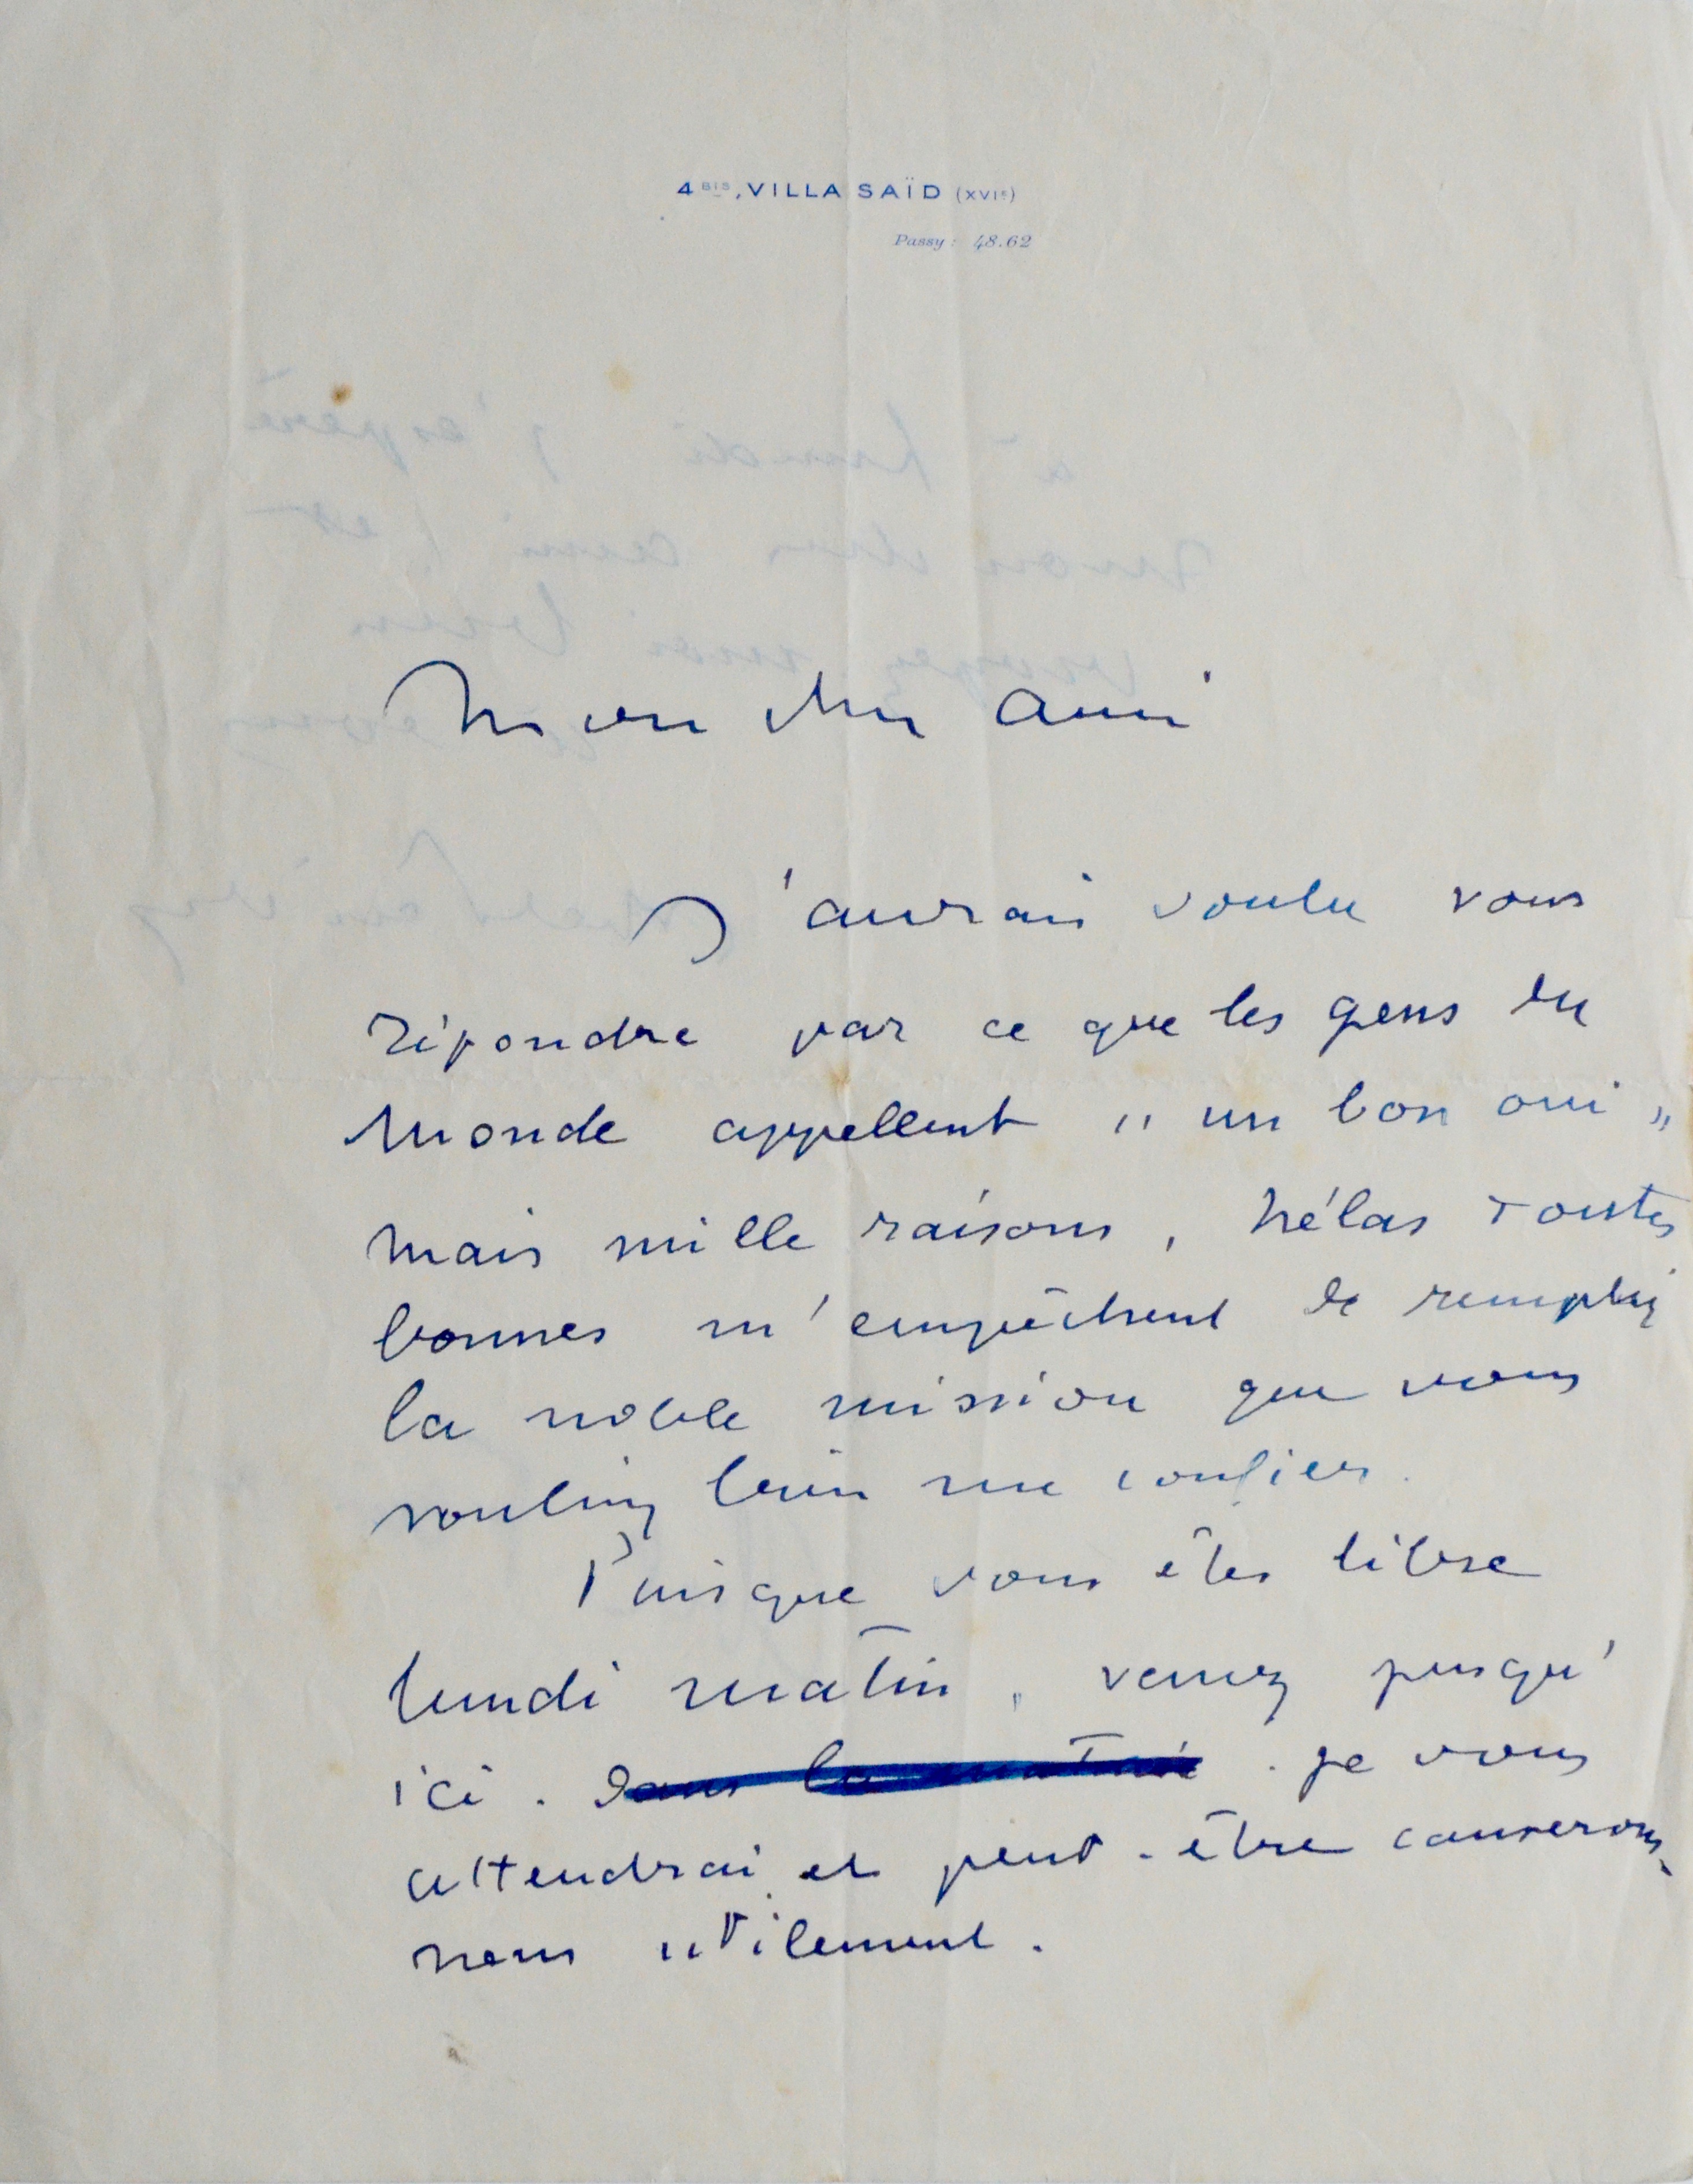 4BIS, VILLA SAÏD (XVIe)
Passy : 48.62
Mon cher ami
J'aurais voulu vous
répondre par ce que les gens du
monde appellent " un bon oui "
mais mille raisons, hélas toutes
bonnes m'empêchent de remplir
la noble mission que vous
vouliez bien me confier.
Puisque vous êtes libre
lundi matin, venez jusqu'
ici. Dans la matinée. je vous
attendrai et peut-être causerons
nous utilement.